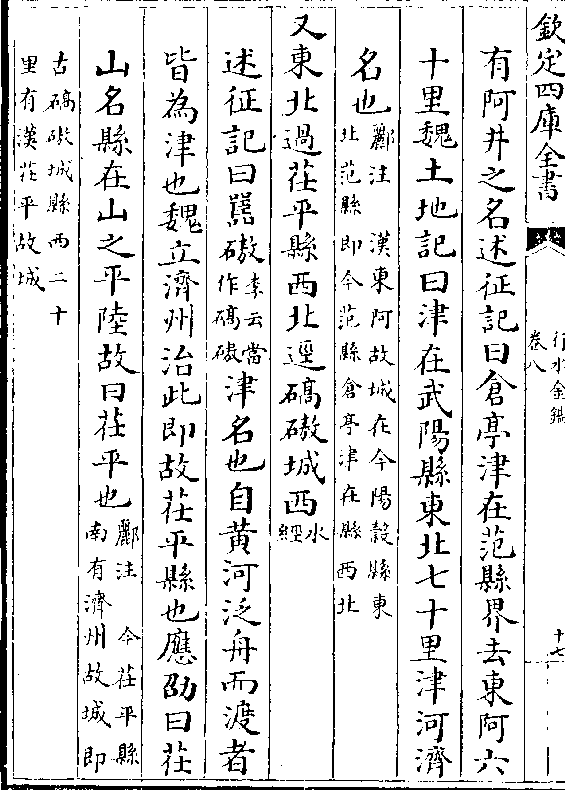 欽定四庫全書
行水金鑑
卷八
十七
有阿井之名述征記曰倉亭津在范縣界去東阿六
十里魏土地記曰津在武陽縣東北七十里津河濟
名也酈注 漢東阿故城在今陽穀縣東
北范縣即今范縣倉亭津在縣西北
又東北過茌平縣西北逕碻磝城西水
經
述征記曰嚣磝李云當
作碻磝津名也自黃河泛舟而渡者
皆為津也魏立濟州治此即故茌平縣也應劭曰茌
山名縣在山之平陸故曰茌平也酈注 今茌平縣
南有濟州故城即
古碻磝城縣西二十
里有漢茌平故城